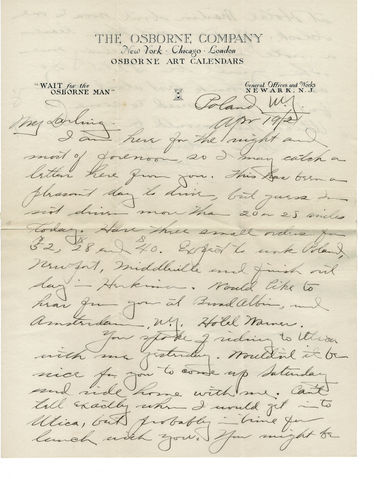 THE OSBORNE COMPANY
New York · Chicago · London
OSBORNE ART CALENDARS
"WAIT for the
OSBORNE MAN"
General Offices and Works
NEWARK, N.J.
Poland N.Y.
Apr 19/21
My Darling
I am here for the night and
most of forenoon, so I may catch a
letter here from you. This has been a
pleasant day to drive, but guess I
not driven more than 20 or 25 miles
today. Have three small orders for
32, 28 and 40. Expect to work Poland,
Newport, Middleville and finish out
day in Herkimer. Would like to
hear from you at Broadalbin, and
Amsterdam, N.Y. Hotel Warner.
You spoke of riding to Utica
with me yesterday. Wouldn't it be
nice for you to come up Saturday
and ride home with me. Can't
tell exactly when I would get into
Utica, but probably in time for
lunch with you. You might be